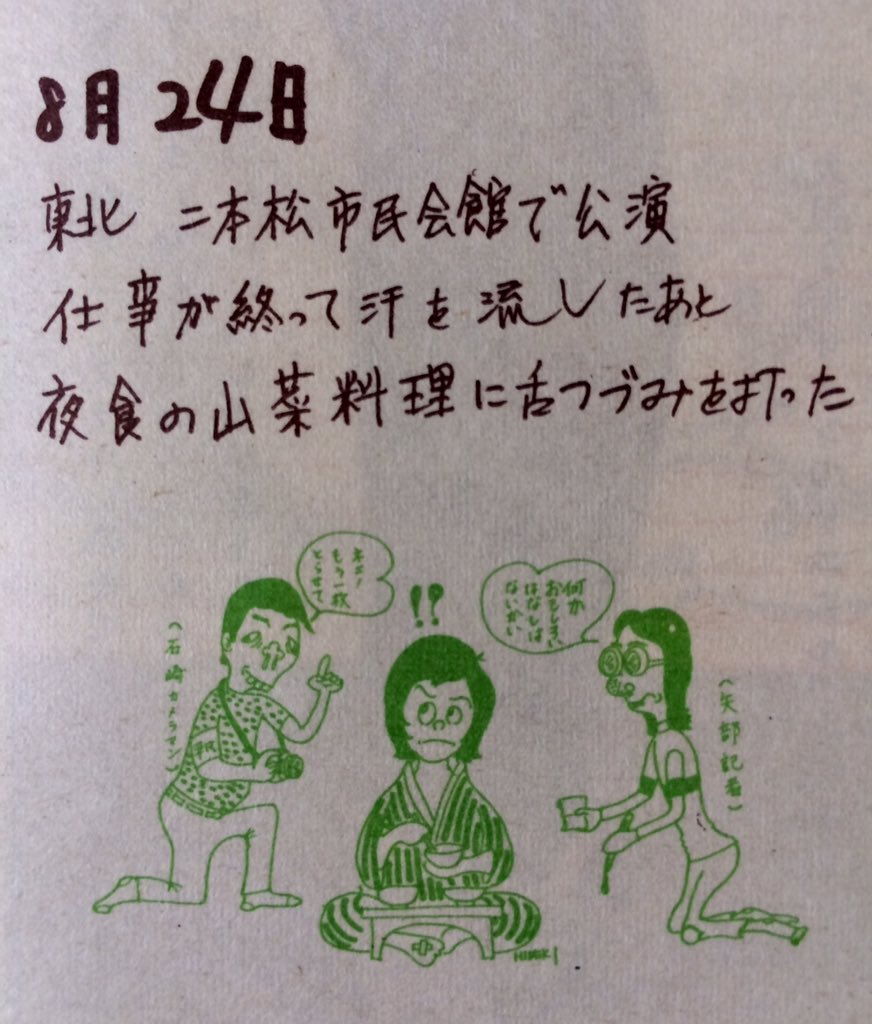 8月24日
東北 二本松市民会館で公演
仕事が終って汗を流したあと
夜食の山菜料理に舌つづみを打った
ネェ!
もう一枚
とらせて
!!
何か
おもしろい
はなしは
ないかい
(石崎カメラマン)
(矢部記者)
HIDEKI